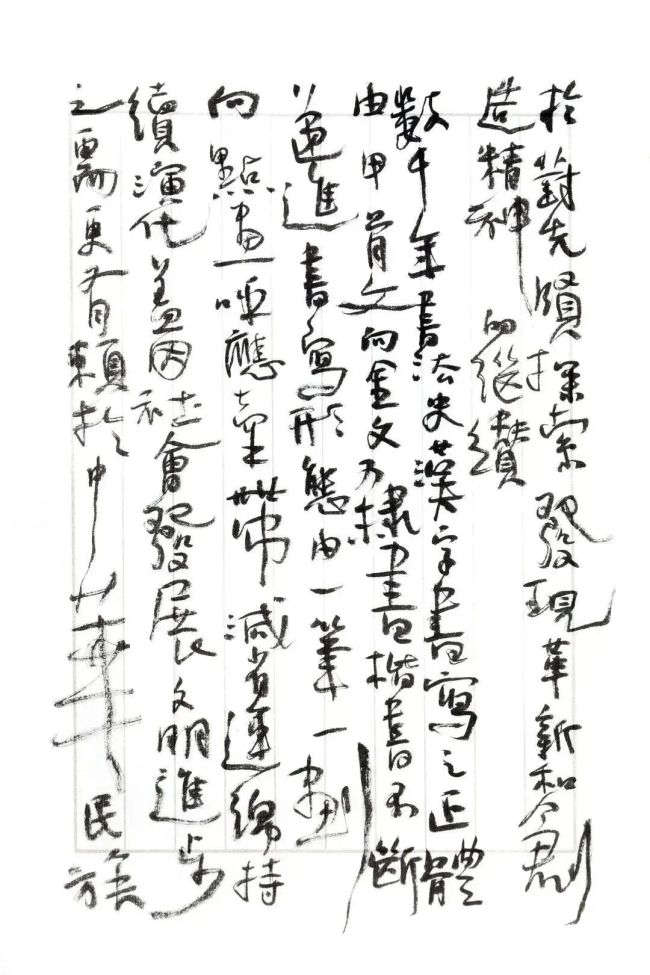 於對先賢探索發現革新和創
造精神的繼續
數千年書法史漢字書寫之正體
由甲骨文向金文乃隸書楷書不斷
遞進書寫形態由一筆一劃
向點畫呼應牽帶減省連綿持
續演化蓋因社會發展文明進步
之需更有賴於中華民族